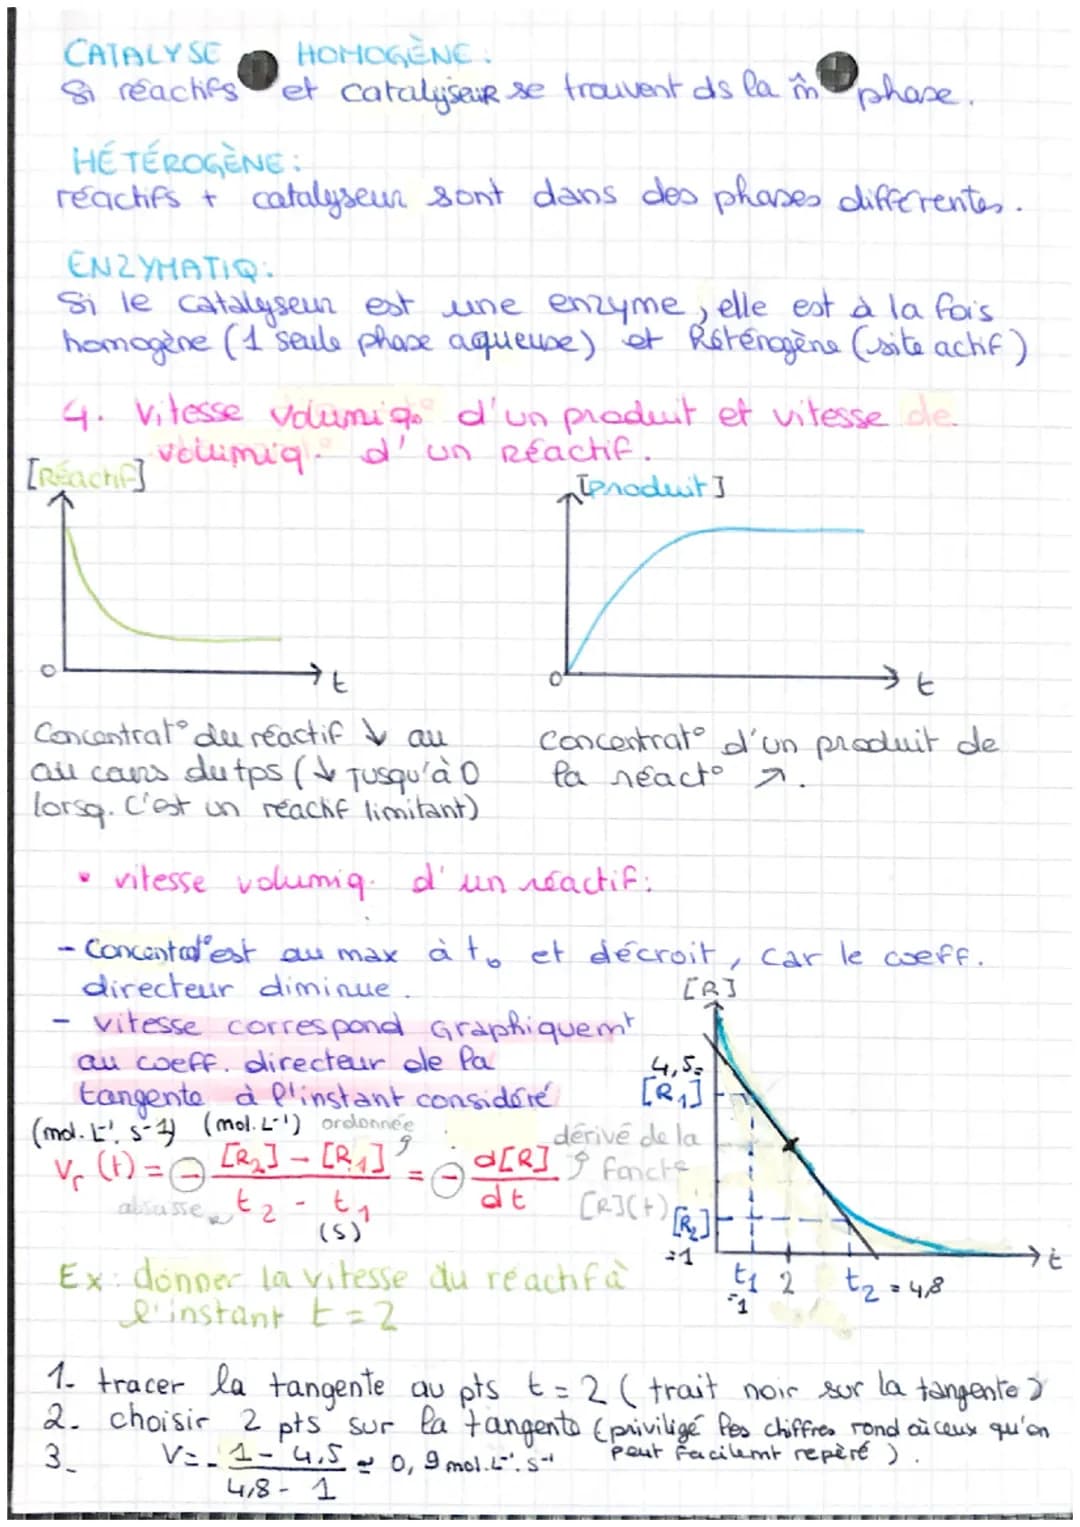 CATALYSE HOMOGÈNE:
Si réactifs et catalyseur se trouvent ds la m̂ phase.
HÉTÉROGÈNE:
réactifs + catalyseur sont dans des phases différentes.
ENZYMATIQ:
Si le catalyseur est une enzyme, elle est à la fois
homogène (1 seule phase aqueuse) et hétérogène (site actif)
4. Vitesse volumiq. d'un produit et vitesse de
volumiq. d'un Réactif.
[Réactif]
[produit]
0
t
0
t
Concentrat° du réactif ↓ au
au cours du tps (↓ jusqu'à 0
lorsq. c'est un réactif limitant)
Concentrat° d'un produit de
la réact° ↗.
• vitesse volumiq. d'un réactif:
- Concentrat° est au max à t₀ et décroit, car le coeff.
directeur diminue.
- vitesse correspond Graphiquemt
au coeff. directeur de la
tangente à l'instant considéré
[R]
4,5=
[R₁]
[R₂]
=1
t₁
=1
2
t₂ = 4,8
t
(mol.L⁻¹.s-1) (mol.L⁻¹) ordonnée
Vr (t) = - [R₂] - [R₁] / t₂ - t₁ = - d[R] / dt
abscisse
(s)
dérivé de la
fonct°
[R](t)
Ex: donner la vitesse du réactif à
l'instant t = 2
1- tracer la tangente au pts t = 2 (trait noir sur la tangente)
2- choisir 2 pts sur la tangente (privilégié les chiffres rond où ceux qu'on
peut facilemt repéré).
3- V = - 1 - 4,5 / 4,8 - 1 ≃ 0,9 mol.L⁻¹.s⁻¹